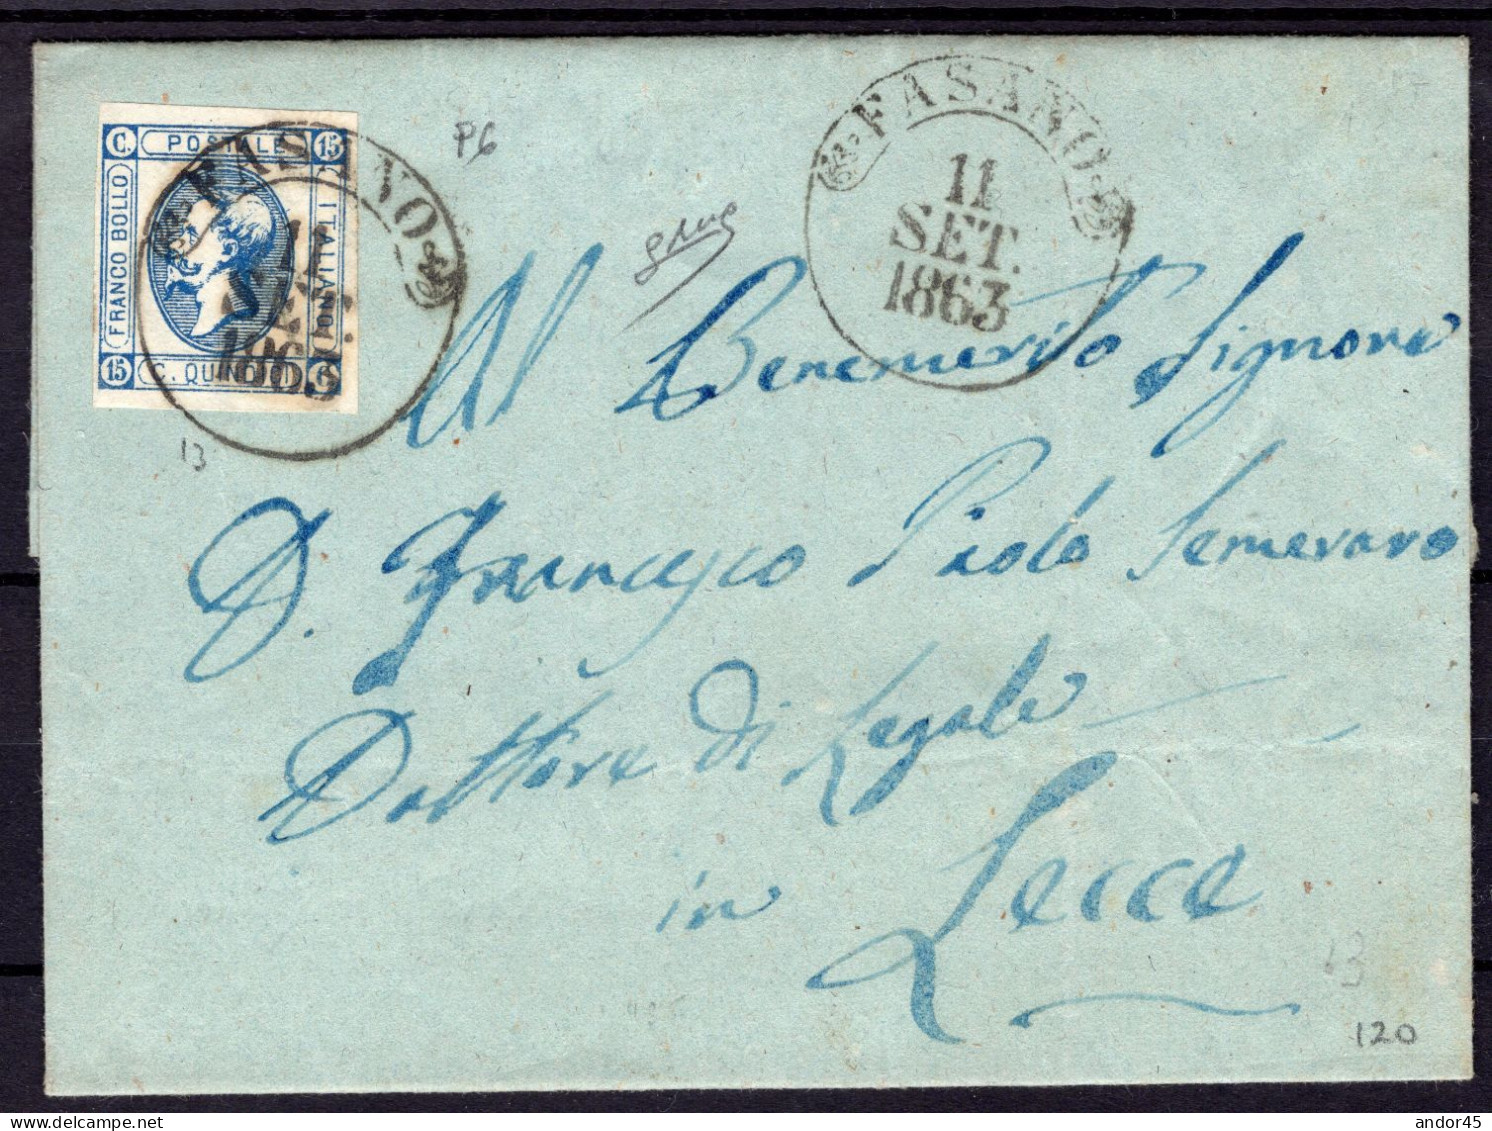 C. POSTALE 15
FRANCO BOLLO
ITALIANO
15 C. QUINDICI C.
FASANO
11
SET.
1863
FASANO
11
SET.
1863
P6
13
Al Benemerito Signore
D. Francesco Paolo Semeraro
Dottore di Legale
in Lecce
13
120
andor45